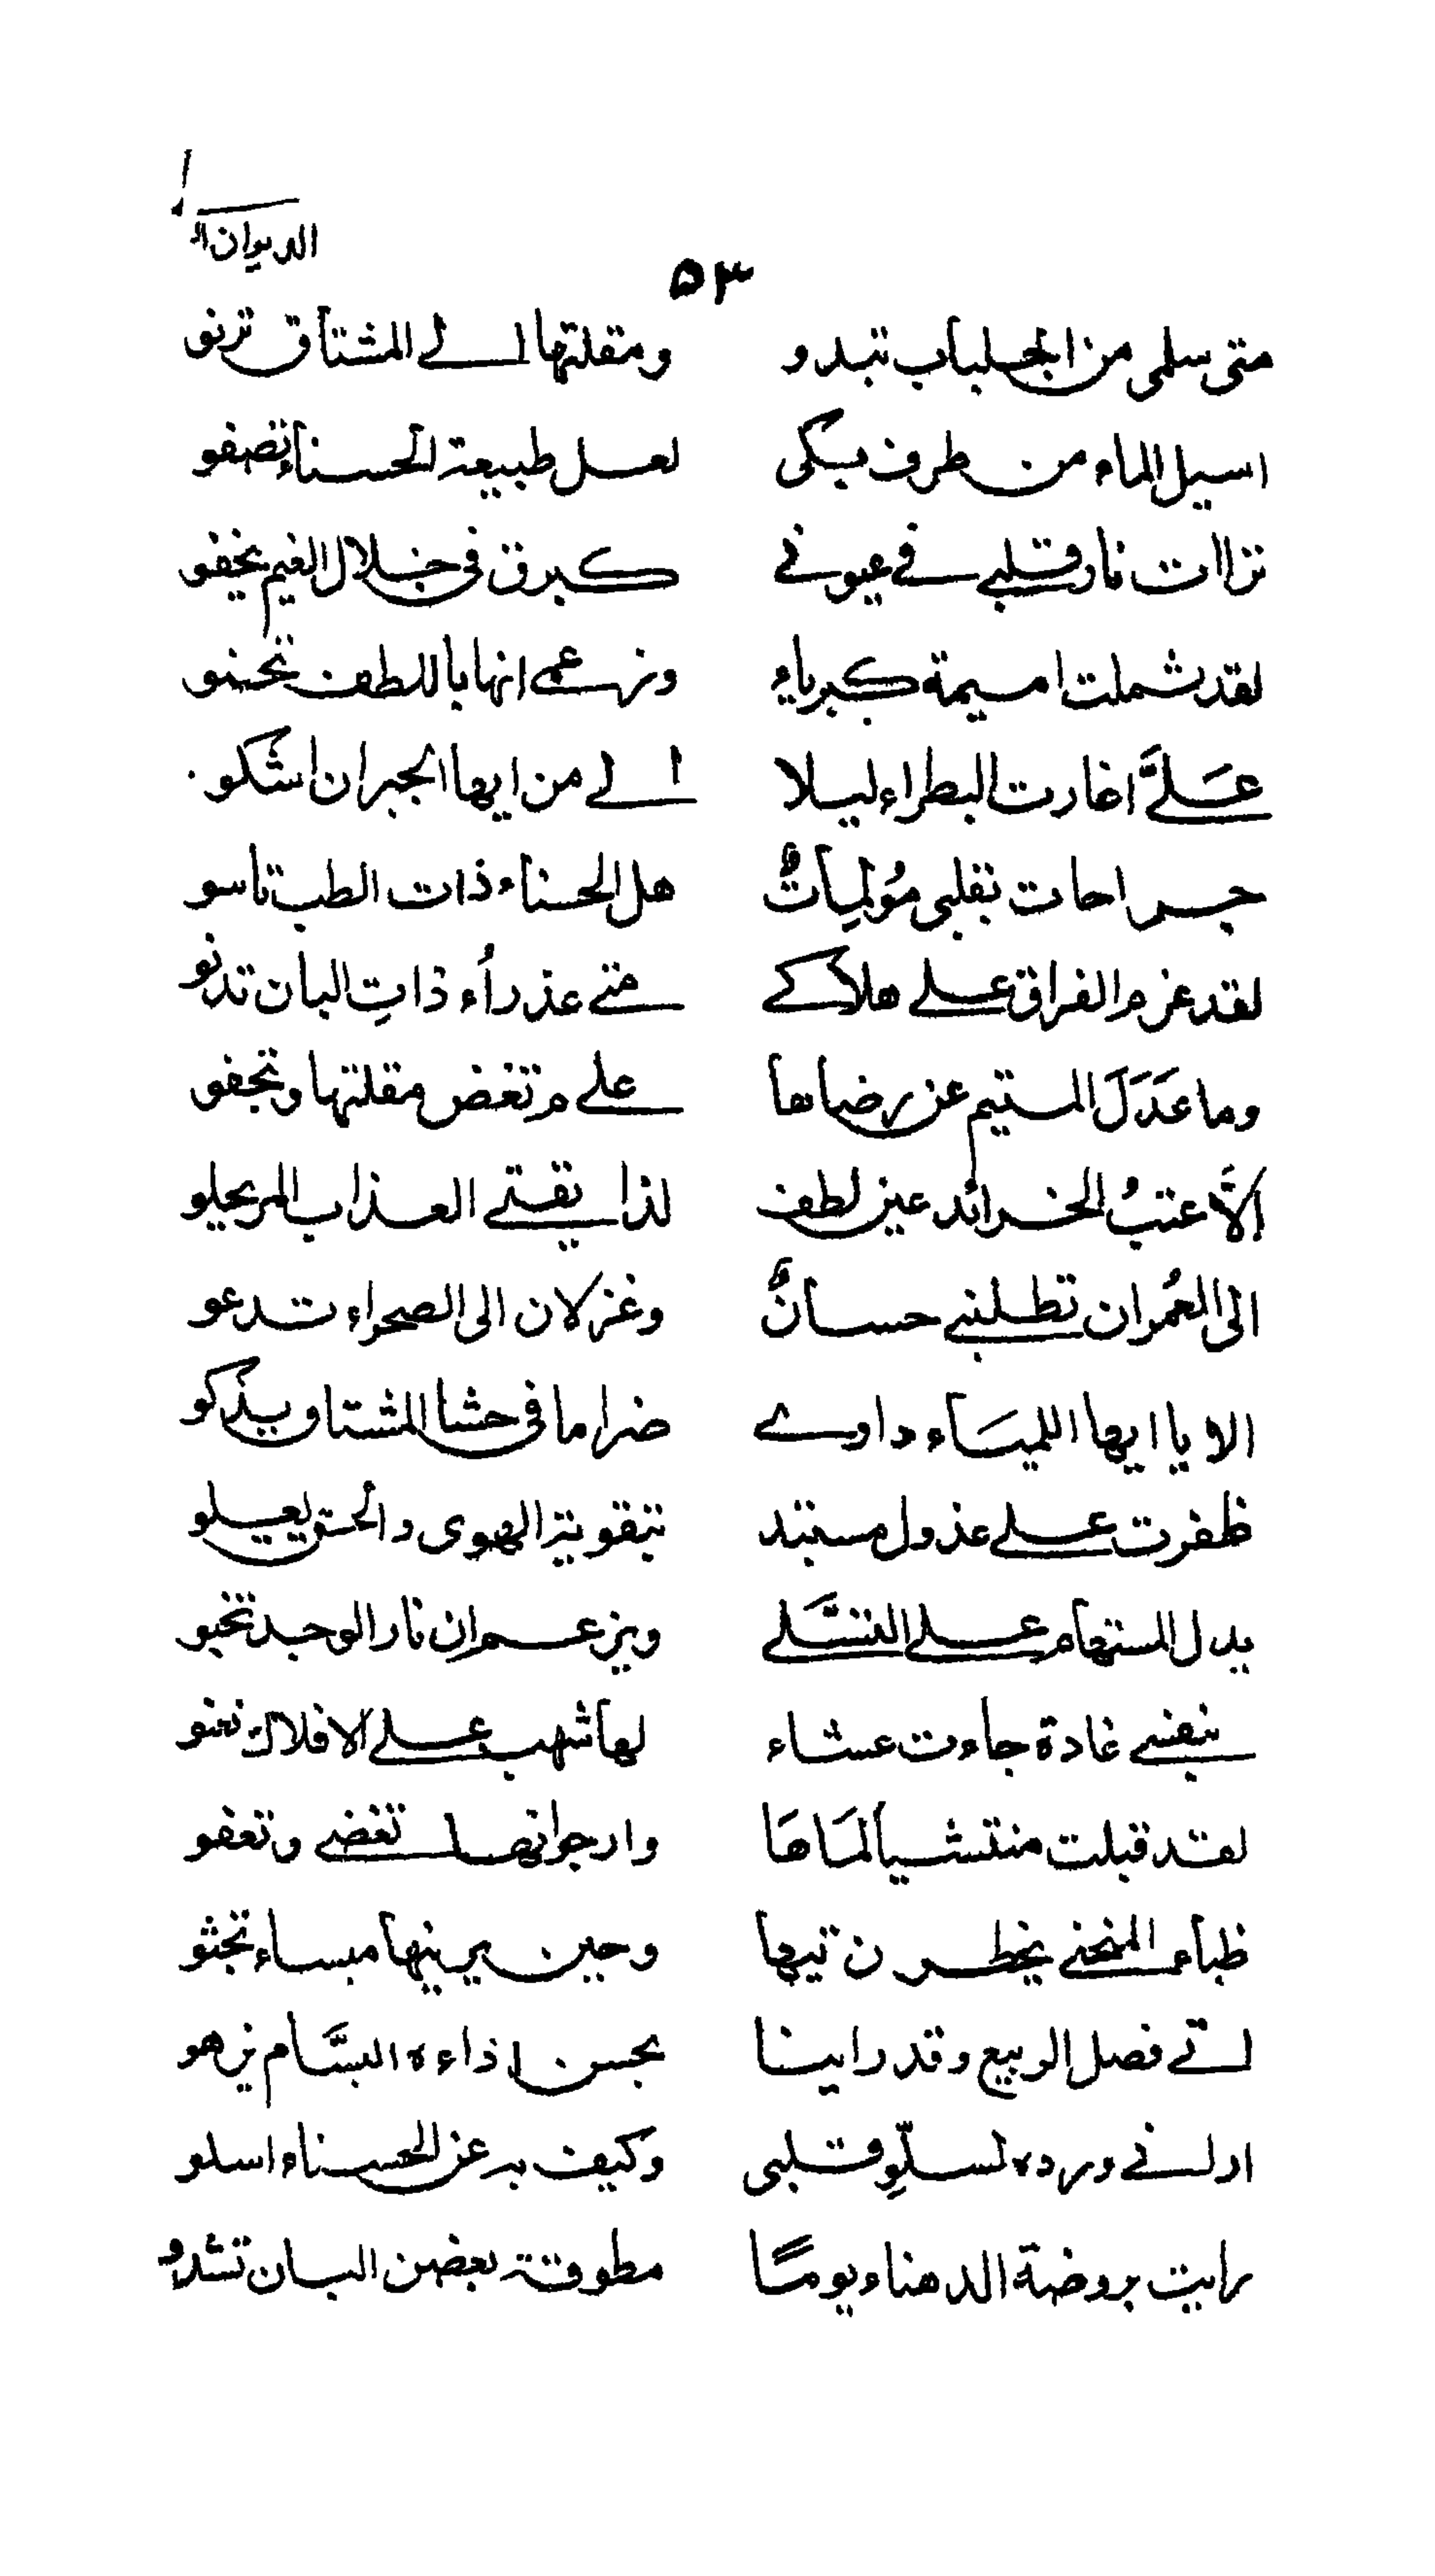 الديوان
٥٣
متى سلمى من الجلباب تبدو ومقلتها الے المشتاق ترنو
اسيل الماء من طرف يبكى لعل طبيعة الحسناء تصفو
نزاات نار قلبے فے عيونے كبرق فى خلال الغيم يخفو
لقد شملت اميمة كبرياء وزعمے انها باللطف تحنو
علَىَّ اغارت البطراء ليلا الے من ايها الجيران اشكو
جراحات بقلبى مُولمِاتٌ هل الحسناء ذات الطب تاسو
لقد عزم الفراق علے هلاكے متے عذراُء ذاتِ البان تدنو
وما عَدَلَ المتيم عن رضاها علے م تغض مقلتها وتجفو
الَّا عتبُ الخرائد عين لطف لذا يقتے العذاب المر يحلو
الى العُمران تطلبنے حسانٌ وغزلان الى الصحراء تدعو
الا يا ايها اللميَاء داوے ضراما فى حشا المشتاق يذكو
ظفرت علے عذول مستبد بتقوية الهوى والحق يعلو
يدل المستهام علے التسَّلے ويزعم ان نار الوجد تخبو
بنفسے غادة جاءت عشاء لها شهب علے الافلاك
لقد قبلت منتشياً لمَاهَا وارجو انها تغضے وتعفو
ظباء المنحنے يخطرن تيها وحين يرينها ميساء تجثو
اتے فصل الربيع وقد راينا بحسن اداءه البسَّام يزهو
ارلنے ورده لسلّوِ قلبى وكيف به عن الحسناء اسلو
رايت بروضة الدهناء يومًا مطوقة بغصن البان تشدو